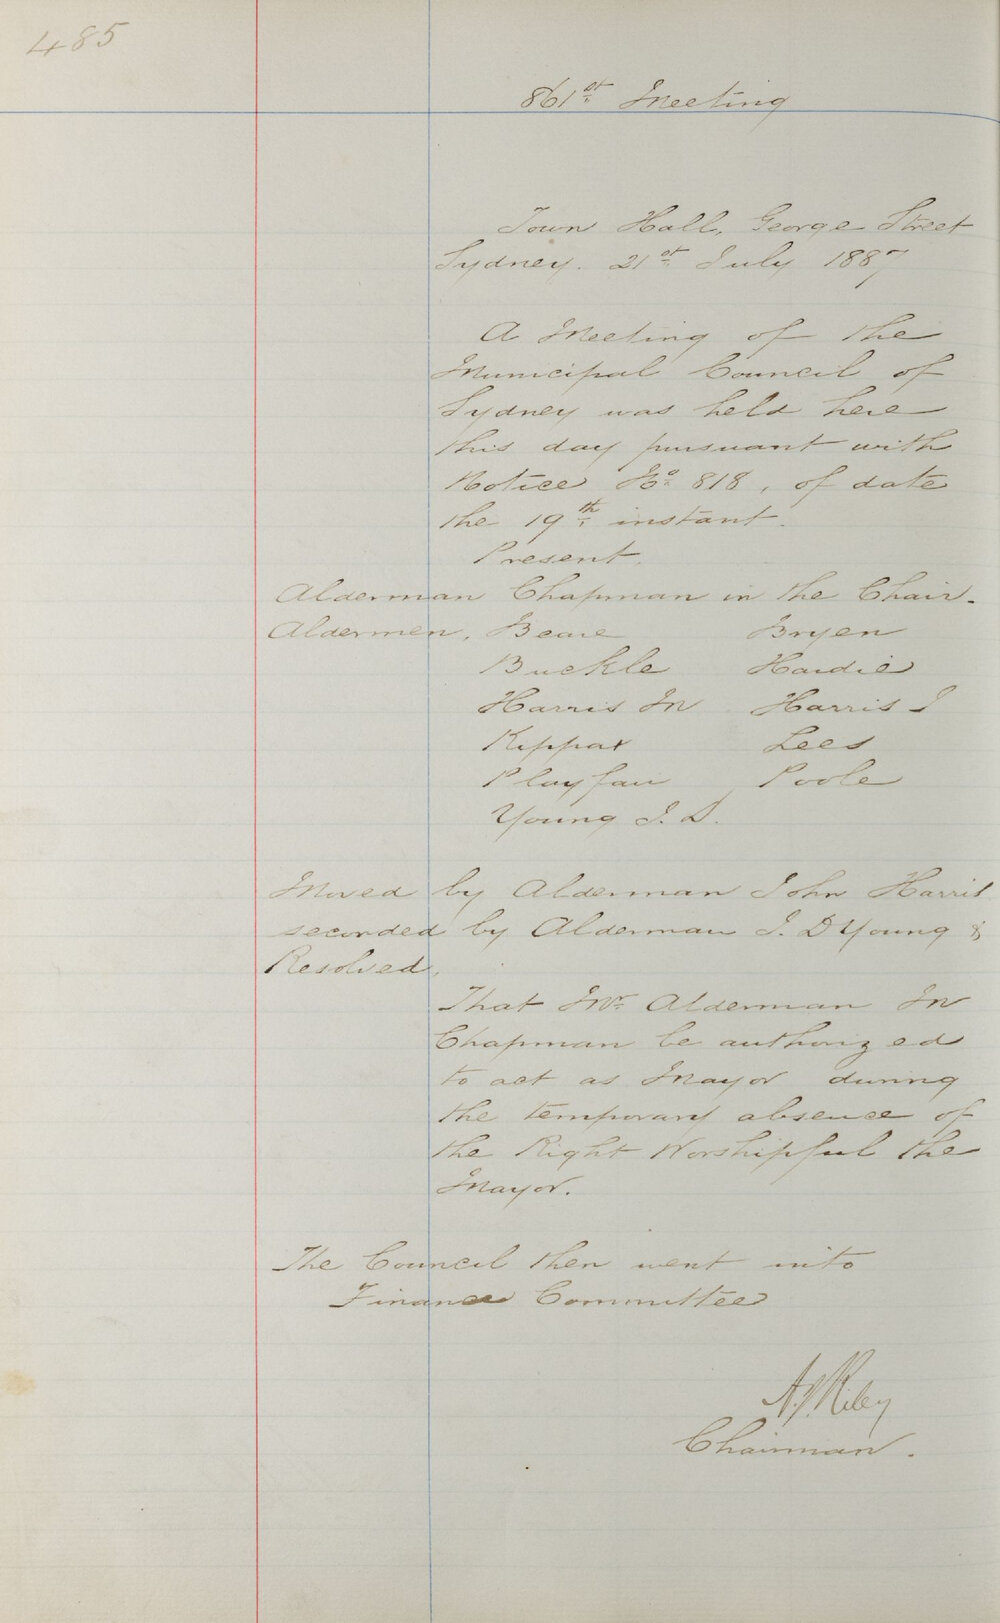 485
861st Meeting
Town Hall, George Street
Sydney. 21st July 1887
A Meeting of the
Municipal Council of
Sydney was held here
this day pursuant with
Notice No 818, of date
the 19th instant.
Present.
Alderman Chapman in the Chair.
Aldermen, Beare Bryen
Buckle Hardie
Harris Jn Harris J
Kippax Lees
Playfair Poole
Young J. D.
Moved by Alderman John Harris
seconded by Alderman J. D Young &
Resolved,
That Mr Alderman Jn
Chapman be authorized
to act as Mayor during
the temporary absence of
the Right Worshipful the
Mayor.
The Council then went into
Finance Committee
A. J. Riley
Chairman.